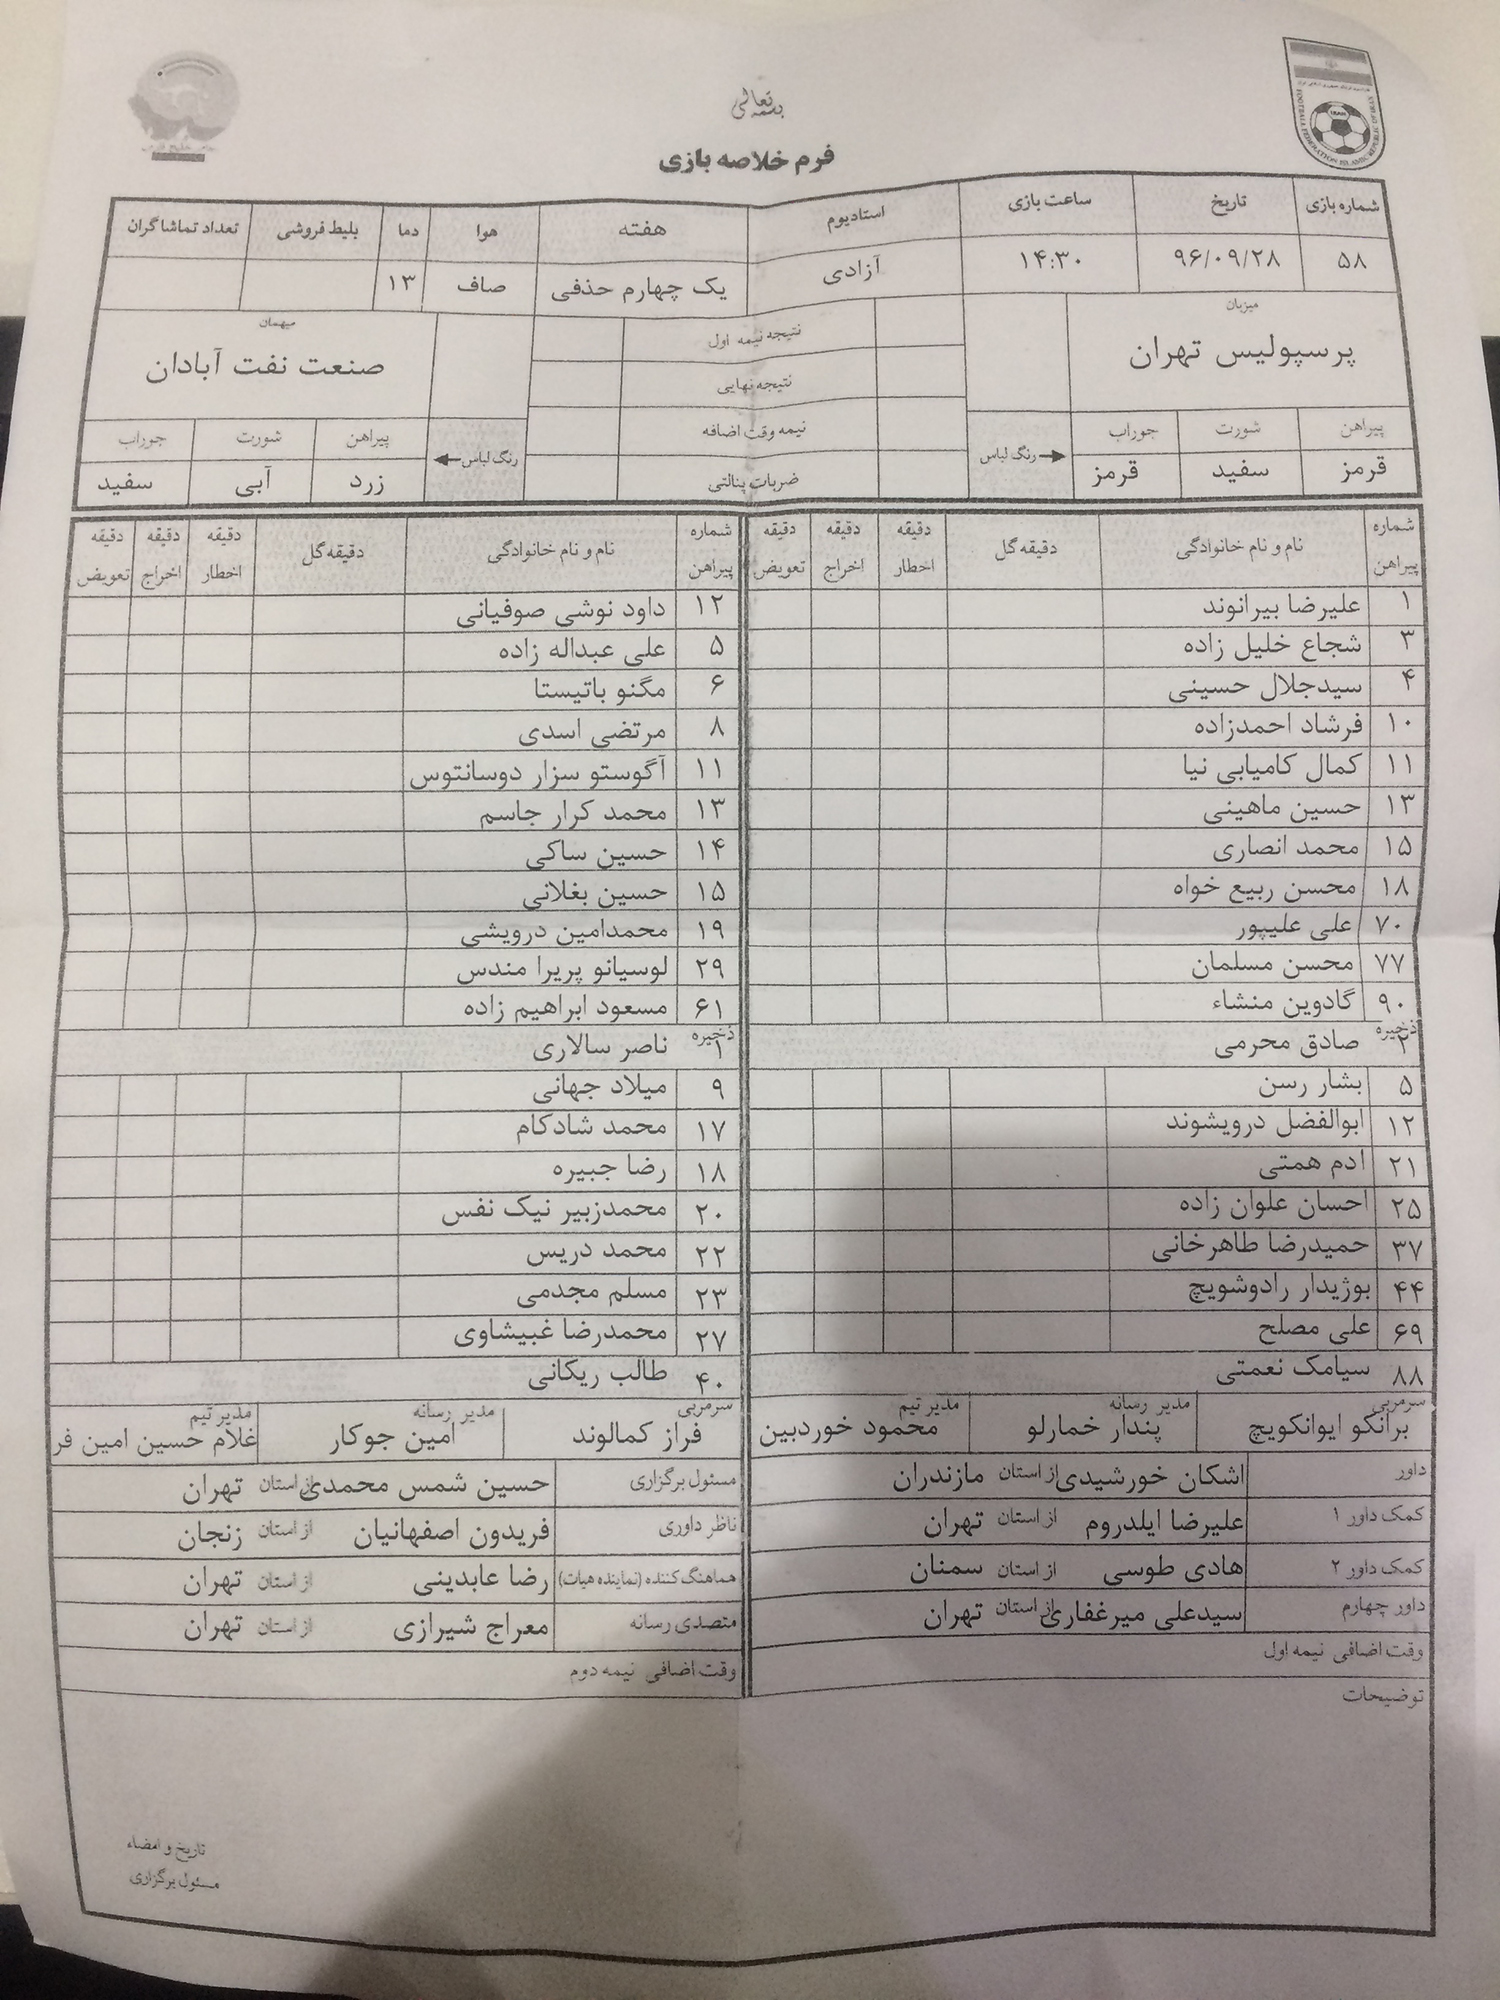 بسمه تعالی
فرم خلاصه بازی
FOOTBALL FEDERATION ISLAMIC REPUBLIC OF IRAN
شماره بازی تاریخ ساعت بازی استادیوم هفته هوا دما بلیط فروشی تعداد تماشاگران
۵۸ ۹۶/۰۹/۲۸ ۱۴:۳۰ آزادی یک چهارم حذفی صاف ۱۳
میزبان
پرسپولیس تهران
نتیجه نیمه اول
نتیجه نهایی
نیمه وقت اضافه
ضربات پنالتی
میهمان
صنعت نفت آبادان
پیراهن شورت جوراب رنگ لباس
قرمز سفید قرمز
رنگ لباس پیراهن شورت جوراب
زرد آبی سفید
شماره پیراهن نام و نام خانوادگی دقیقه گل دقیقه اخطار دقیقه اخراج دقیقه تعویض
۱ علیرضا بیرانوند
۳ شجاع خلیل زاده
۴ سیدجلال حسینی
۱۰ فرشاد احمدزاده
۱۱ کمال کامیابی نیا
۱۳ حسین ماهینی
۱۵ محمد انصاری
۱۸ محسن ربیع خواه
۷۰ علی علیپور
۷۷ محسن مسلمان
۹۰ گادوین منشاء
ذخیره
۲ صادق محرمی
۵ بشار رسن
۱۲ ابوالفضل درویشوند
۲۱ ادم همتی
۲۵ احسان علوان زاده
۳۷ حمیدرضا طاهرخانی
۴۴ بوژیدار رادوشویچ
۶۹ علی مصلح
۸۸ سیامک نعمتی
سرمربی مدیر رسانه مدیر تیم
برانکو ایوانکویچ پندار خمارلو محمود خوردبین
داور اشکان خورشیدی از استان مازندران
کمک داور ۱ علیرضا ایلدروم از استان تهران
کمک داور ۲ هادی طوسی از استان سمنان
داور چهارم سیدعلی میرغفاری از استان تهران
وقت اضافی نیمه اول
شماره پیراهن نام و نام خانوادگی دقیقه گل دقیقه اخطار دقیقه اخراج دقیقه تعویض
۱۲ داود نوشی صوفیانی
۵ علی عبداله زاده
۶ مگنو باتیستا
۸ مرتضی اسدی
۱۱ آگوستو سزار دوسانتوس
۱۳ محمد کرار جاسم
۱۴ حسین ساکی
۱۵ حسین بغلانی
۱۹ محمدامین درویشی
۲۹ لوسیانو پریرا مندس
۶۱ مسعود ابراهیم زاده
ذخیره
۱ ناصر سالاری
۹ میلاد جهانی
۱۷ محمد شادکام
۱۸ رضا جبیره
۲۰ محمدزبیر نیک نفس
۲۲ محمد دریس
۲۳ مسلم مجدمی
۲۷ محمدرضا غبیشاوی
۴۰ طالب ریکانی
سرمربی مدیر رسانه مدیر تیم
فراز کمالوند امین جوکار غلام حسین امین فر
مسئول برگزاری حسین شمس محمدی از استان تهران
ناظر داوری فریدون اصفهانیان از استان زنجان
هماهنگ کننده (نماینده هیات) رضا عابدینی از استان تهران
متصدی رسانه معراج شیرازی از استان تهران
وقت اضافی نیمه دوم
توضیحات
تاریخ و امضاء
مسئول برگزاری